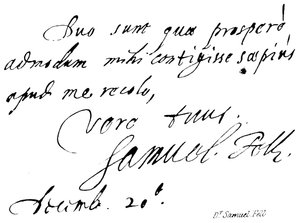 Duo sunt quæ prosperò
admodum mihi contigisse sæpius
apud me recolo,
Vere tuus.
Samuel. Fell.
Decemb. 20º.
Dr. Samuel Fell